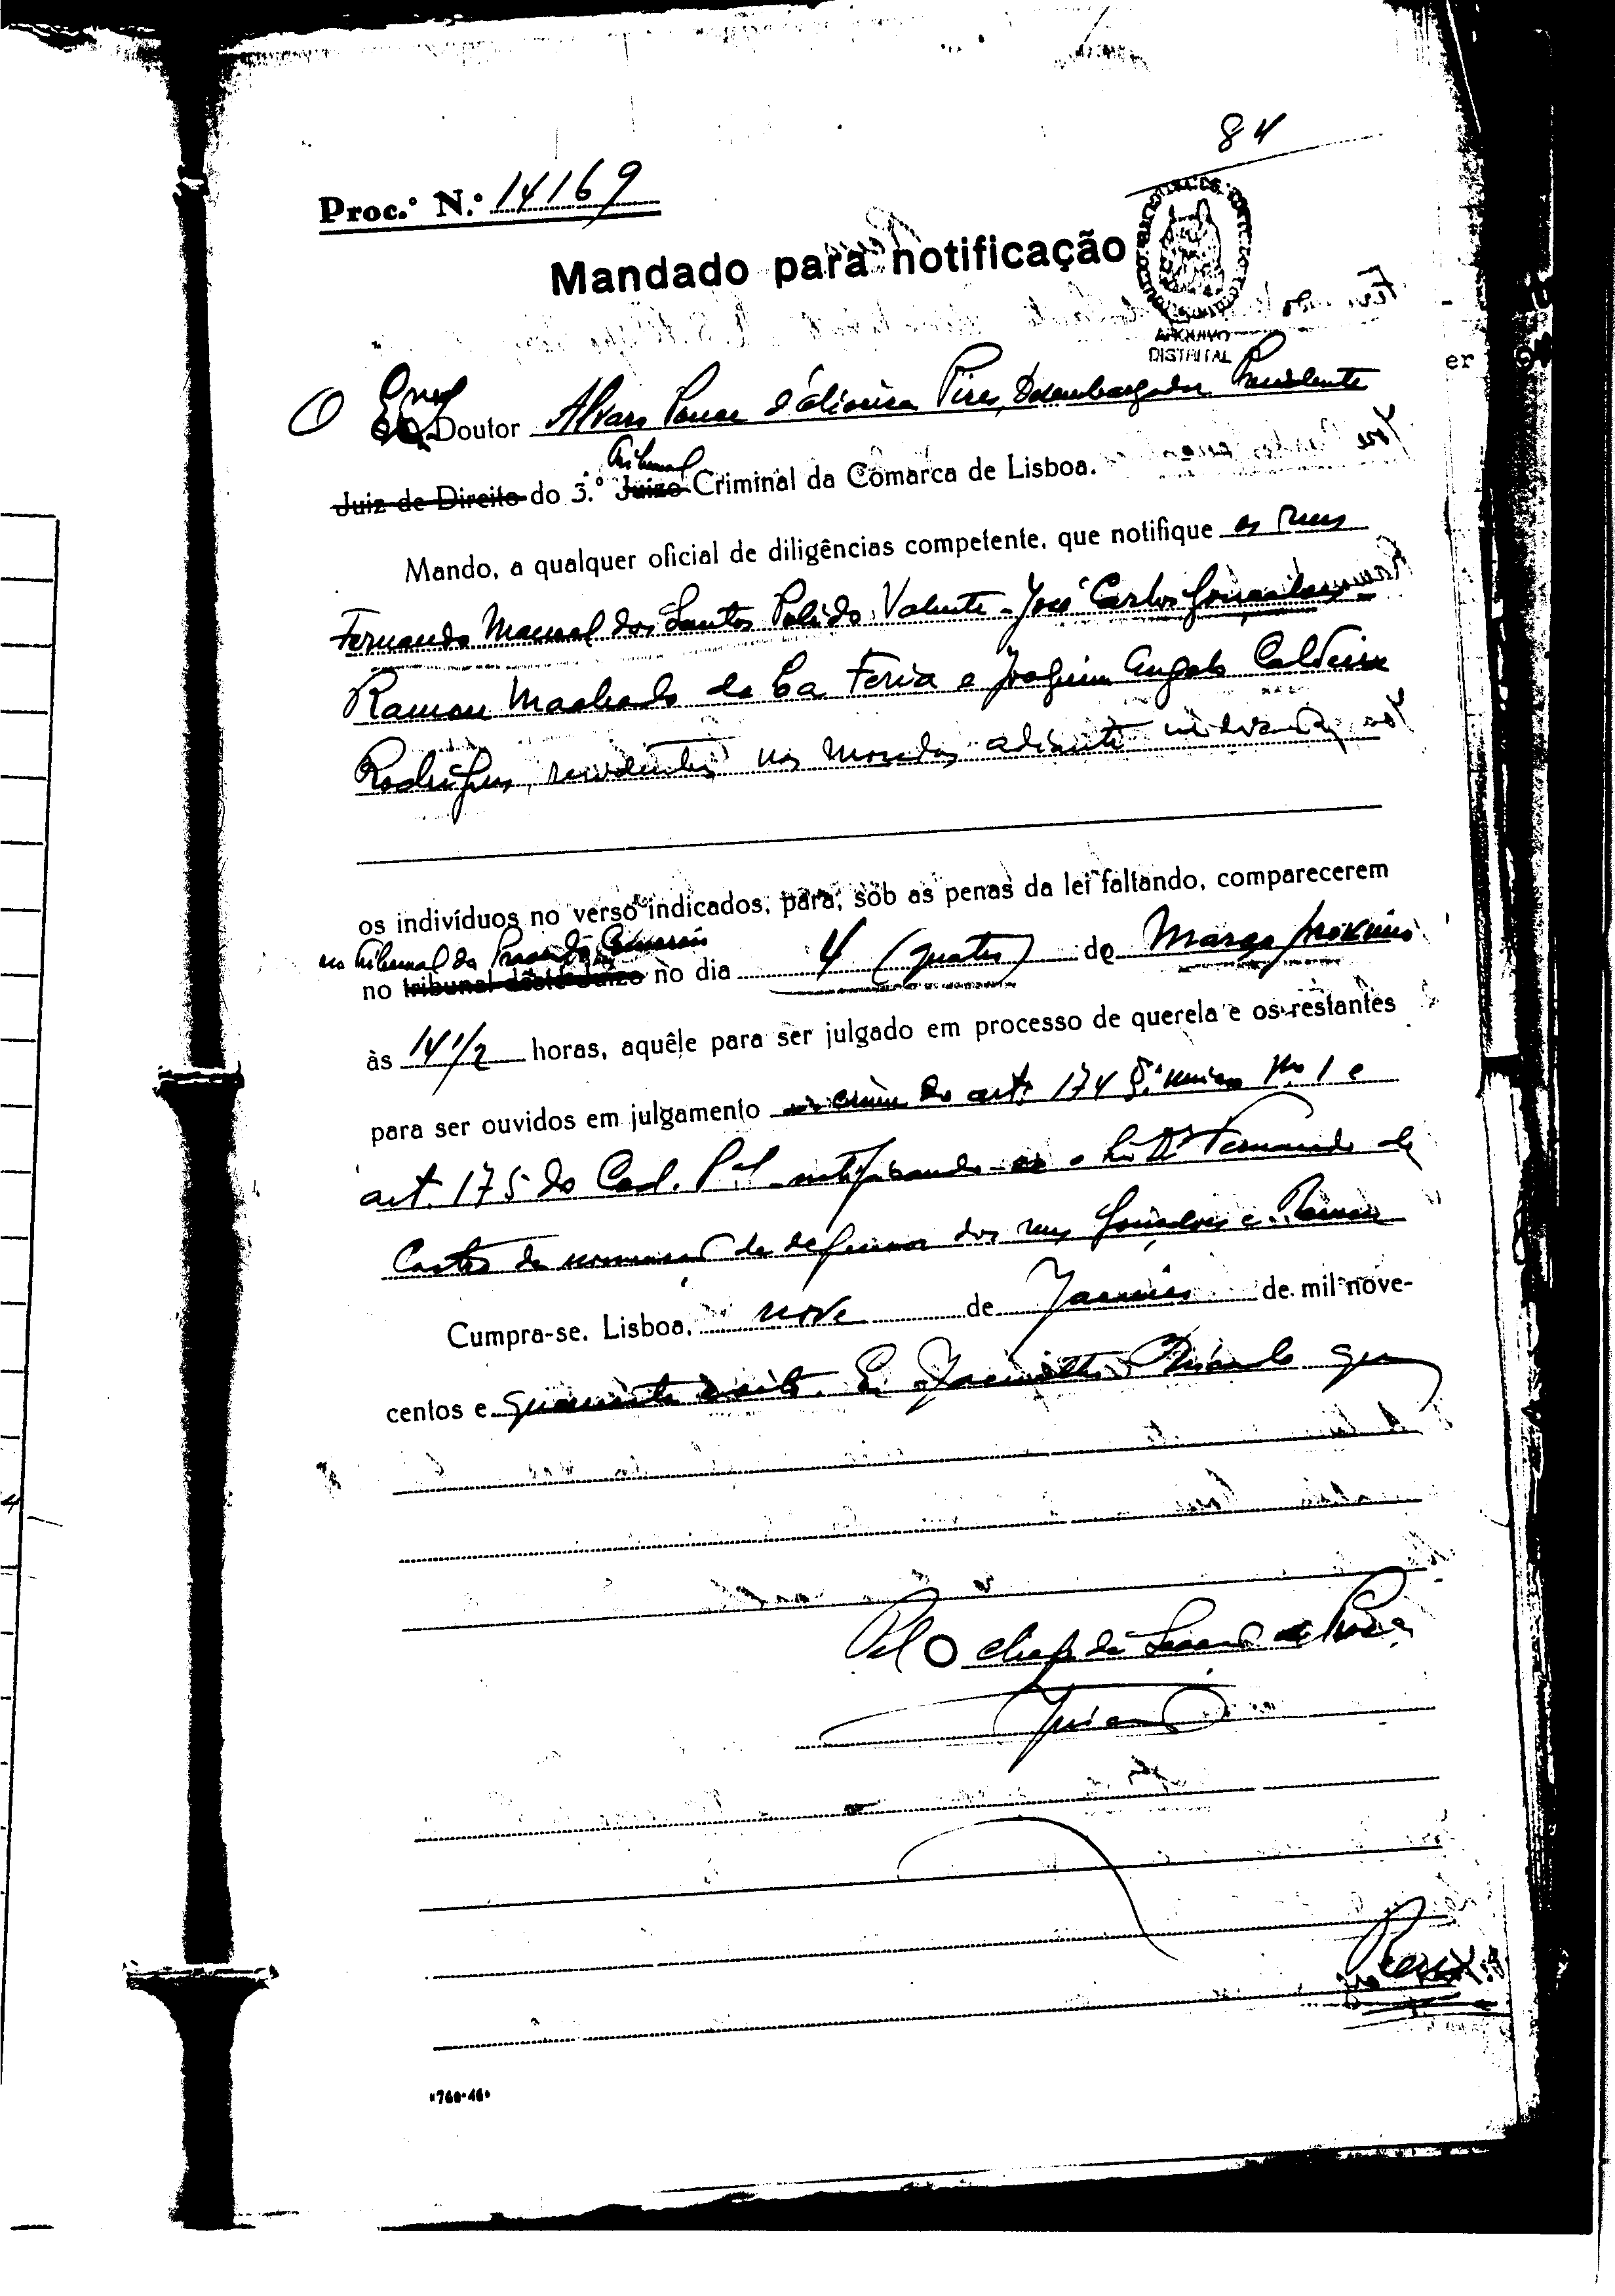 84
Proc.º N.º 14169
Mandado para notificação
ARQUIVO
DISTRITAL
er
O Exmo Doutor Alvaro Ponce d'Oliveira Pires, Desembargador Presidente
Tribunal
Juiz de Direito do 3.º Juizo Criminal da Comarca de Lisboa.
Mando, a qualquer oficial de diligências competente, que notifique os reus
Fernando Manuel dos Santos Pulido Valente - José Carlos Gonçalves -
Ramon Machado de La Feria e Joaquim Angelo Caldeira
Rodrigues, residentes nas moradas adiante indicadas
os indivíduos no verso indicados, para, sob as penas da lei faltando, comparecerem
no Tribunal da
no tribunal dêste Juizo no dia 4 (quatro) de Março proximo
às 14 1/2 horas, aquêle para ser julgado em processo de querela e os restantes
para ser ouvidos em julgamento crime do artº 174 §º unico nº 1 e
art. 175 do Cod. P.al notificando-se o Dr Fernando de
Castro da nomeação de defensor dos reus Gonçalves e Ramon
Cumpra-se. Lisboa, nove de Janeiro de mil nove-
centos e quarenta e oito. Eu
Pel O chefe de
«760-46»